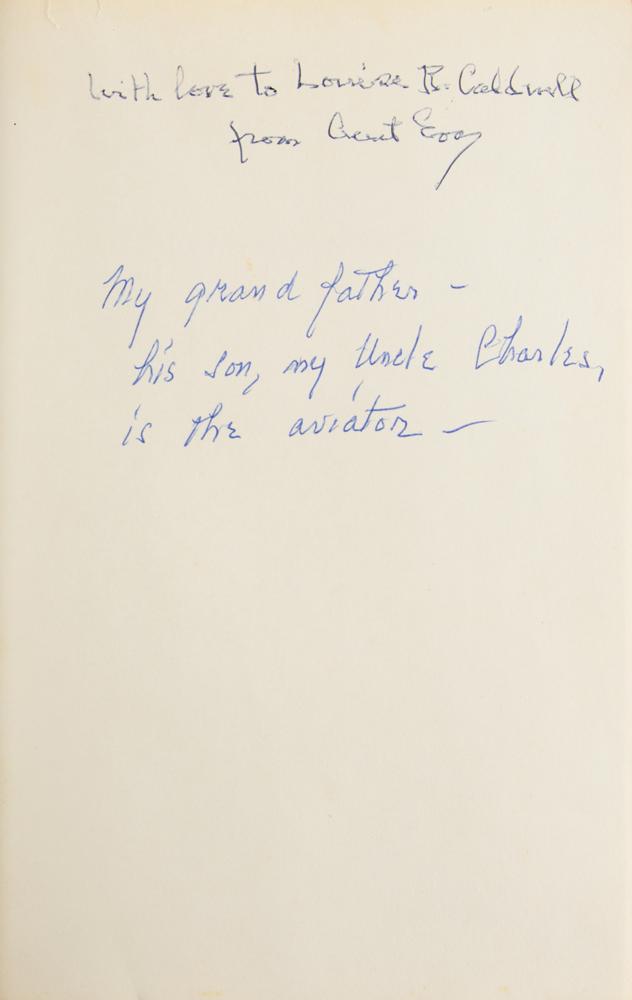 With love to Louise R. Caldwell
from Aunt Eva
My grand father -
his son, my Uncle Charles,
is the aviator -